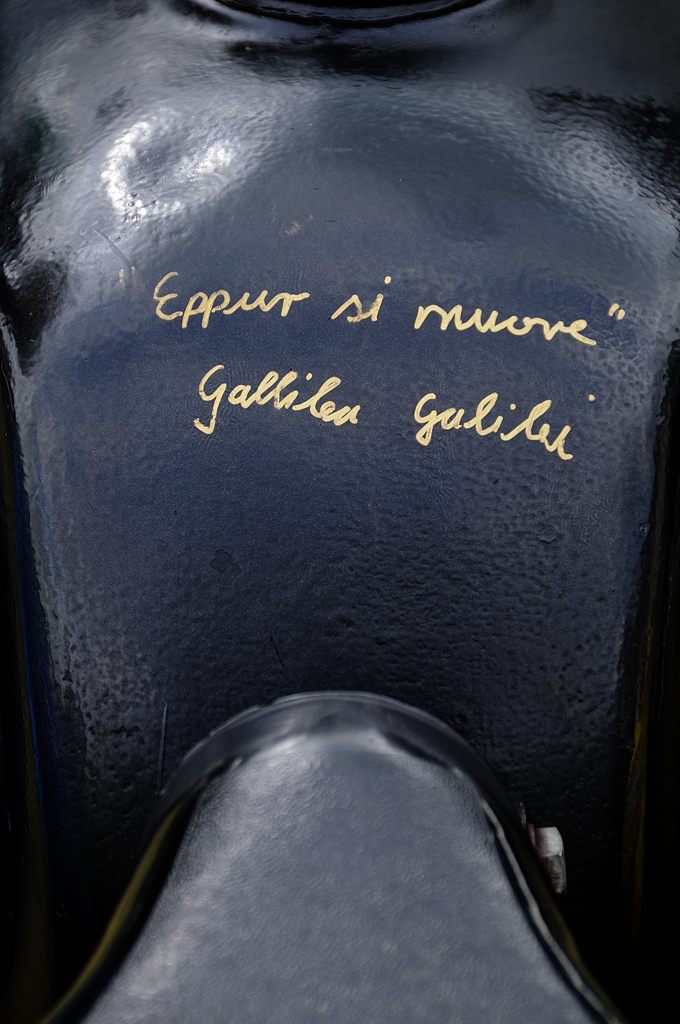 "Eppur si muove"
Gallileu Galilei